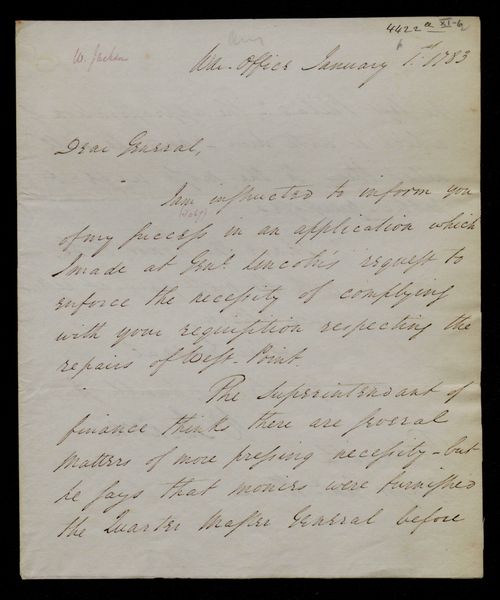 4422 a XI-6
W. Jackson
War-Office January 1st. 1783
Dear General,
I am instructed to inform you
of my success in an application which
I made at Genl. Lincoln's request to
enforce the necessity of complying
with your requisition respecting the
repairs of West-Point.
The Superintendant of
finance thinks there are several
matters of more pressing necessity - but
he says that monies were furnished
the Quarter Master General before